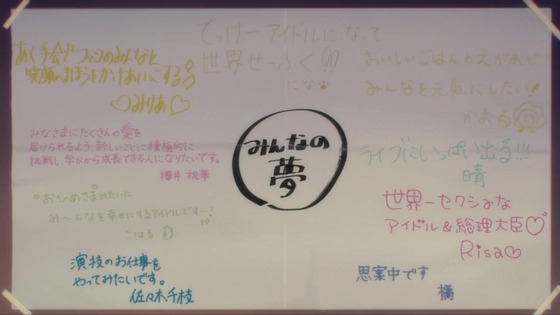 みんなの
夢
あく手会でファンのみんなと
笑顔のまほうをかけあいこする
みりあ
でっけーアイドルになって
世界せーふく!!
にな
おいしいごはんとえがおで
みんなを元気にしたい!
かおる
みなさまにたくさんの愛を
届けられるよう、新しいことに積極的に
挑戦し、学びから成長できる人になりたいです。
櫻井 桃華
ライブにいっぱい出る!!!
晴
おひめさまみたいに
み〜んなを幸せにするアイドルです〜!
こはる
世界一セクシーな
アイドル&総理大臣♡
Risa♡
演技のお仕事を
やってみたいです。
佐々木千枝
思案中です
橘